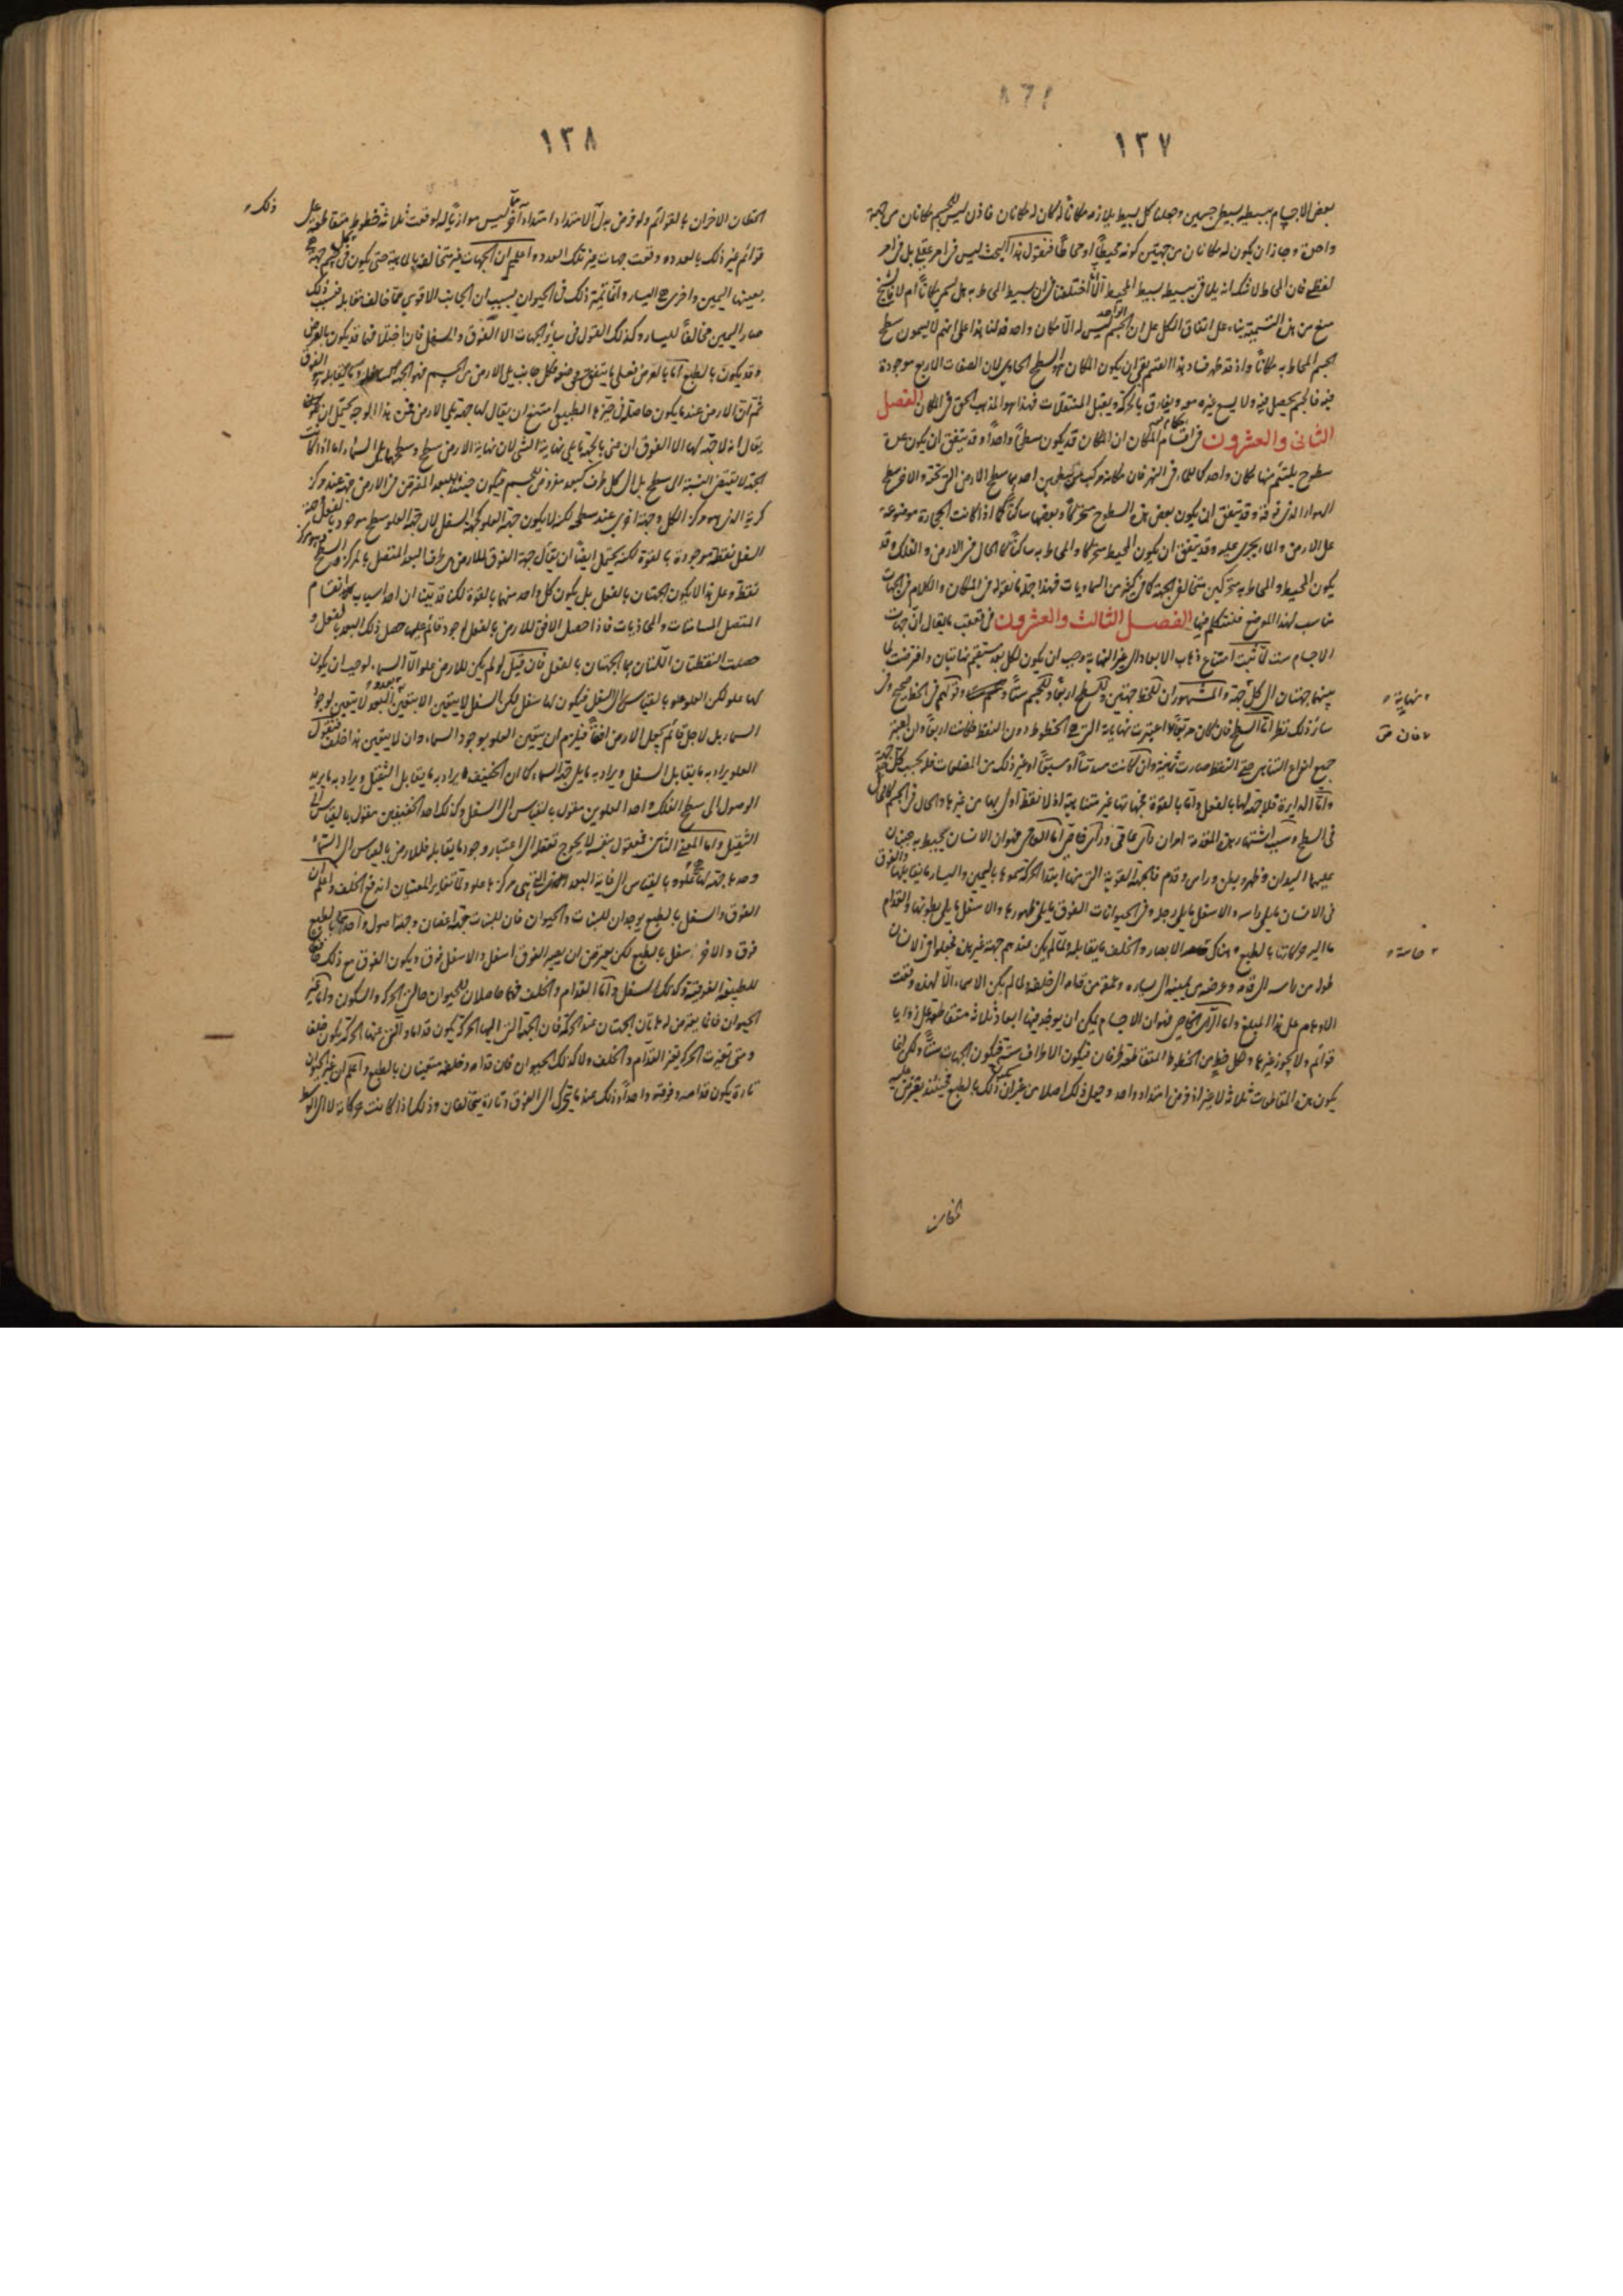 ١٣٧
بعض الاجسام ببسيطه بسيط جسمين وجعلنا كل بسيط يلازمه مكاناً لكان له مكانان فاذن ليس للجسم مكانان من جهة
واحدة وجاز ان يكون له مكانان من جهتين كونه محيطاً او محاطاً فنقول هذا البحث ليس فى امر عقلى بل فى امر
لفظى فان المحاط لا شك انه يلاقى ببسيطه بسيط المحيط الا انا اختلفنا فى ان بسيط المحاط به هل يسمى مكاناً ام لا فالشيخ
منع من هذه التسمية بناء على اتفاق الكل على ان الجسم الواحد ليس له الا مكان واحد فدلنا هذا على انهم لا يسمون سطح
الجسم المحاط به مكاناً واذ قد ظهر فساد هذا القسم بقى ان يكون المكان هو السطح الحاوى لان الصفات الاربع موجودة
فيه فالجسم يحصل فيه ولا يسع غيره معه ويفارق بالحركة ويقبل المنتقلات فهذا هو المذهب الحق فى المكان الفصل
الثانى والعشرون فى اقسام المكان ان المكان قد يكون سطحاً واحداً وقد يتفق ان يكون عدة
سطوح يلتئم منها مكان واحد كالماء فى النهر فان مكانه مركب من سطحين احدهما سطح الارض التى تحته والاخر سطح
الهواء الذى فوقه وقد يتفق ان يكون بعض هذه السطوح متحركاً وبعضها ساكناً كما اذا كانت الحجارة موضوعة
على الارض والماء يجرى عليه وقد يتفق ان يكون المحيط متحركا والمحاط به ساكناً كالحال فى الارض والفلك وقد
يكون المحيط والمحاط به متحركين متخالفى الجهة كما فى كثير من السماويات فهذا جملة ما نقوله فى المكان والكلام فى الجهات
مناسب لهذا الموضع فلنتكلم فيها الفصل الثالث والعشرون فى تعقب ما يقال ان جهات
الاجسام ست لما ثبت امتناع ذهاب الابعاد الى غير النهاية وجب ان يكون لكل بعد مستقيم نهايتان وافترضت لها
بينهما جهتان الى كل جهة والمشهور ان للخط جهتين وللسطح اربعاً وللجسم ستاً وقولهم فى الخط صحيح وفى
سائر ذلك نظر اما السطح فان كان مربعاً واعتبرت نهاياته التى هى الخطوط دون النقط كانت اربعاً وان اعتبر
جميع انواع التناهى حتى النقط صارت ثمانية وان كانت مسدساً او مسبعاً او غير ذلك من المضلعات فله بحسب كل حد جهة
واما الدايرة فلا جهة لها بالفعل واما بالقوة فجهاتها غير متناهية اذ لا نقطة اولى بها من غيرها والحال فى الجسم كالحال
فى السطح وسبب اشتهار هذه المقدمة امران رأى عامى ورأى خاصى اما العامى فهو ان الانسان يحيط به جنبان
عليهما اليدان وظهر وبطن وراس وقدم فالجهة القوية التى منها ابتداء الحركة سموها باليمين واليسار ما يقابلها والفوق
فى الانسان ما يلى راسه والاسفل ما يلى رجله وفى الحيوانات الفوق ما يلى ظهورها والاسفل ما يلى بطونها والقدام
ما اليه حركاتها بالطبع وهناك الابصار والخلف ما يقابله ولما لم يكن عندهم جهة غير هذه فجعلوا فى الانسان
طوله من راسه الى قدمه وعرضه من يمينه الى يساره وعمقه من قدامه الى خلفه ولما لم يكن الاسماء الا لهذه وقفت
الاوهام على هذا المبلغ واما الراى الخاصى فهو ان الاجسام يمكن ان يوخذ فيها ابعاد ثلاثة متقاطعة على زوايا
قوائم ولا يجوز غيرها ولكل خط من الخطوط المتقاطعة طرفان فيكون الاطراف ستة فيكون الجهات ستاً ولكن انما
يكون هذه المقاطعات ثلاثة لا غير اذا فرض امتداد واحد وجعل ذلك اصلا من غير ان يكون ذلك بالطبع فحينئذ يفترض عليه
نهاية
فان
خاسة
الخطان
١٣٨
الخطان الاخران بالقوائم ولو فرض بدل الامتداد امتداد آخر ليس موازياً له لوقعت ثلاثة خطوط متقاطعة على
قوائم غير ذلك بالعدد ووقعت جهات غير تلك بالعدد واعلم ان الجهات غير متخالفة بالماهية حتى يكون فى كل جسم جهة
بعينها اليمين واخرى هى اليسار وانما تميز ذلك فى الحيوان بسبب ان الجانب الاقوى مما خالف مقابله فبسبب ذلك
صار اليمين مخالفاً لليسار وكذلك القول فى سائر الجهات الا الفوق والسفل فان اختلافهما قد يكون بالعرض
وقد يكون بالطبع
ثم ان الارض عندما يكون حاصلة فى حيزها الطبيعى امتنع ان يقال لها جهة
يقال انه لا جهة لها الا الفوق ان عنى بالجهة ما يلى نهاية الشئ لان نهاية الارض سطح وسطحها يلى السماء اما اذا كانت
الجهة لا يقتضى النسبة الى سطح بل الى كل طرف كبعد مفروض فى جسم فيكون حينئذ للبعد المفترض فى الارض جهة عند مركز
كرية الذى هو مركز الكل وجهة اخرى عند سطحه لكنه لا يكون جهة العلو كجهة السفل لان جهة العلو سطح موجود بالفعل وجهة
السفل نقطة موجودة بالقوة لكنه يحتمل ايضاً ان يقال جهة الفوق للارض هى طرف البعد المتصل بالمركز
نقطة وعلى هذا لا يكون الجهتان بالفعل بل يكون كل واحد منهما بالقوة لكنا قد بينا ان احد اسباب انقسام
المتصل المسامتات والمحاذيات فاذا حصل الافق للارض بالفعل او جود قائم عليها حصل ذلك البعد بالفعل و
حصلت النقطتان اللتان هما الجهتان بالفعل فان قيل لو لم يكن للارض علو الا السماء لوجب ان يكون
لها علو لكن العلو علو بالقياس الى السفل فيكون لها سفل لكن السفل لا يتعين الا بتعين البعد
السماء بل لاجل قائم كجبل الارض افقاً فيلزم ان يتعين العلو بوجود السماء وان لا يتعين هذا خلف فنقول
العلو يراد به ما يقابل السفل ويراد به ما يلى جهة السماء كما ان الخفيف يراد به ما يقابل الثقيل ويراد به ما يريد
الوصول الى سطح الفلك واحد العلوين مقول بالقياس الى السفل وكذلك احد الخفيفين مقول بالقياس الى
الثقيل واما المعنى الثانى فمعقول بنفسه لا يحوج تعقله الى اعتبار وجود ما يقابله فللارض بالقياس الى السماء
وحدها جهة لها علو وبالقياس الى غاية البعد الذى هى مركزها علو ولما تغاير المعنيان اندفع الخلف واعلم ان
الفوق والسفل بالطبع يوجدان للنبات والحيوان فان للنبات جهة اغصان وجهة اصول واحدهما بالطبع
فوق والاخر سفل بالطبع لكن يعرض ان يصير الفوق اسفل والاسفل فوق ويكون الفوق مع ذلك حافظا
للطبيعة الفوقية وكذلك السفل واما القدام والخلف فهما حاصلان للحيوان حالتى الحركة والسكون واما غير
الحيوان فانما يعرض له هاتان الجهتان عند الحركة فان الجهة التى اليها الحركة يكون قداما والتى عنها الحركة يكون خلفا
ومتى تغيرت الحركة تغير القدام والخلف ولا كذلك الحيوان فان قدامه وخلفه متعينان بالطبع واعلم ان غير الحيوان
تارة يكون قدامه وفوقه واحداً وذلك عندما يتحرك الى الفوق وتارة يتخالفان وذلك اذا كانت حركاته لا الى الوسط
ذلك